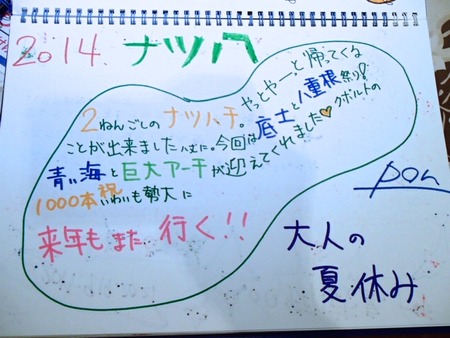 2014. ナツ八
2ねんごしのナツハチ。やっとやーと帰ってくる
ことが出来ました八丈に。今回は底土と八重根祭り!
青い海と巨大アーチが迎えてくれました♡クボルトの
1000本祝いわいも勢大に
来年もまた行く!!
pon
大人の
夏休み